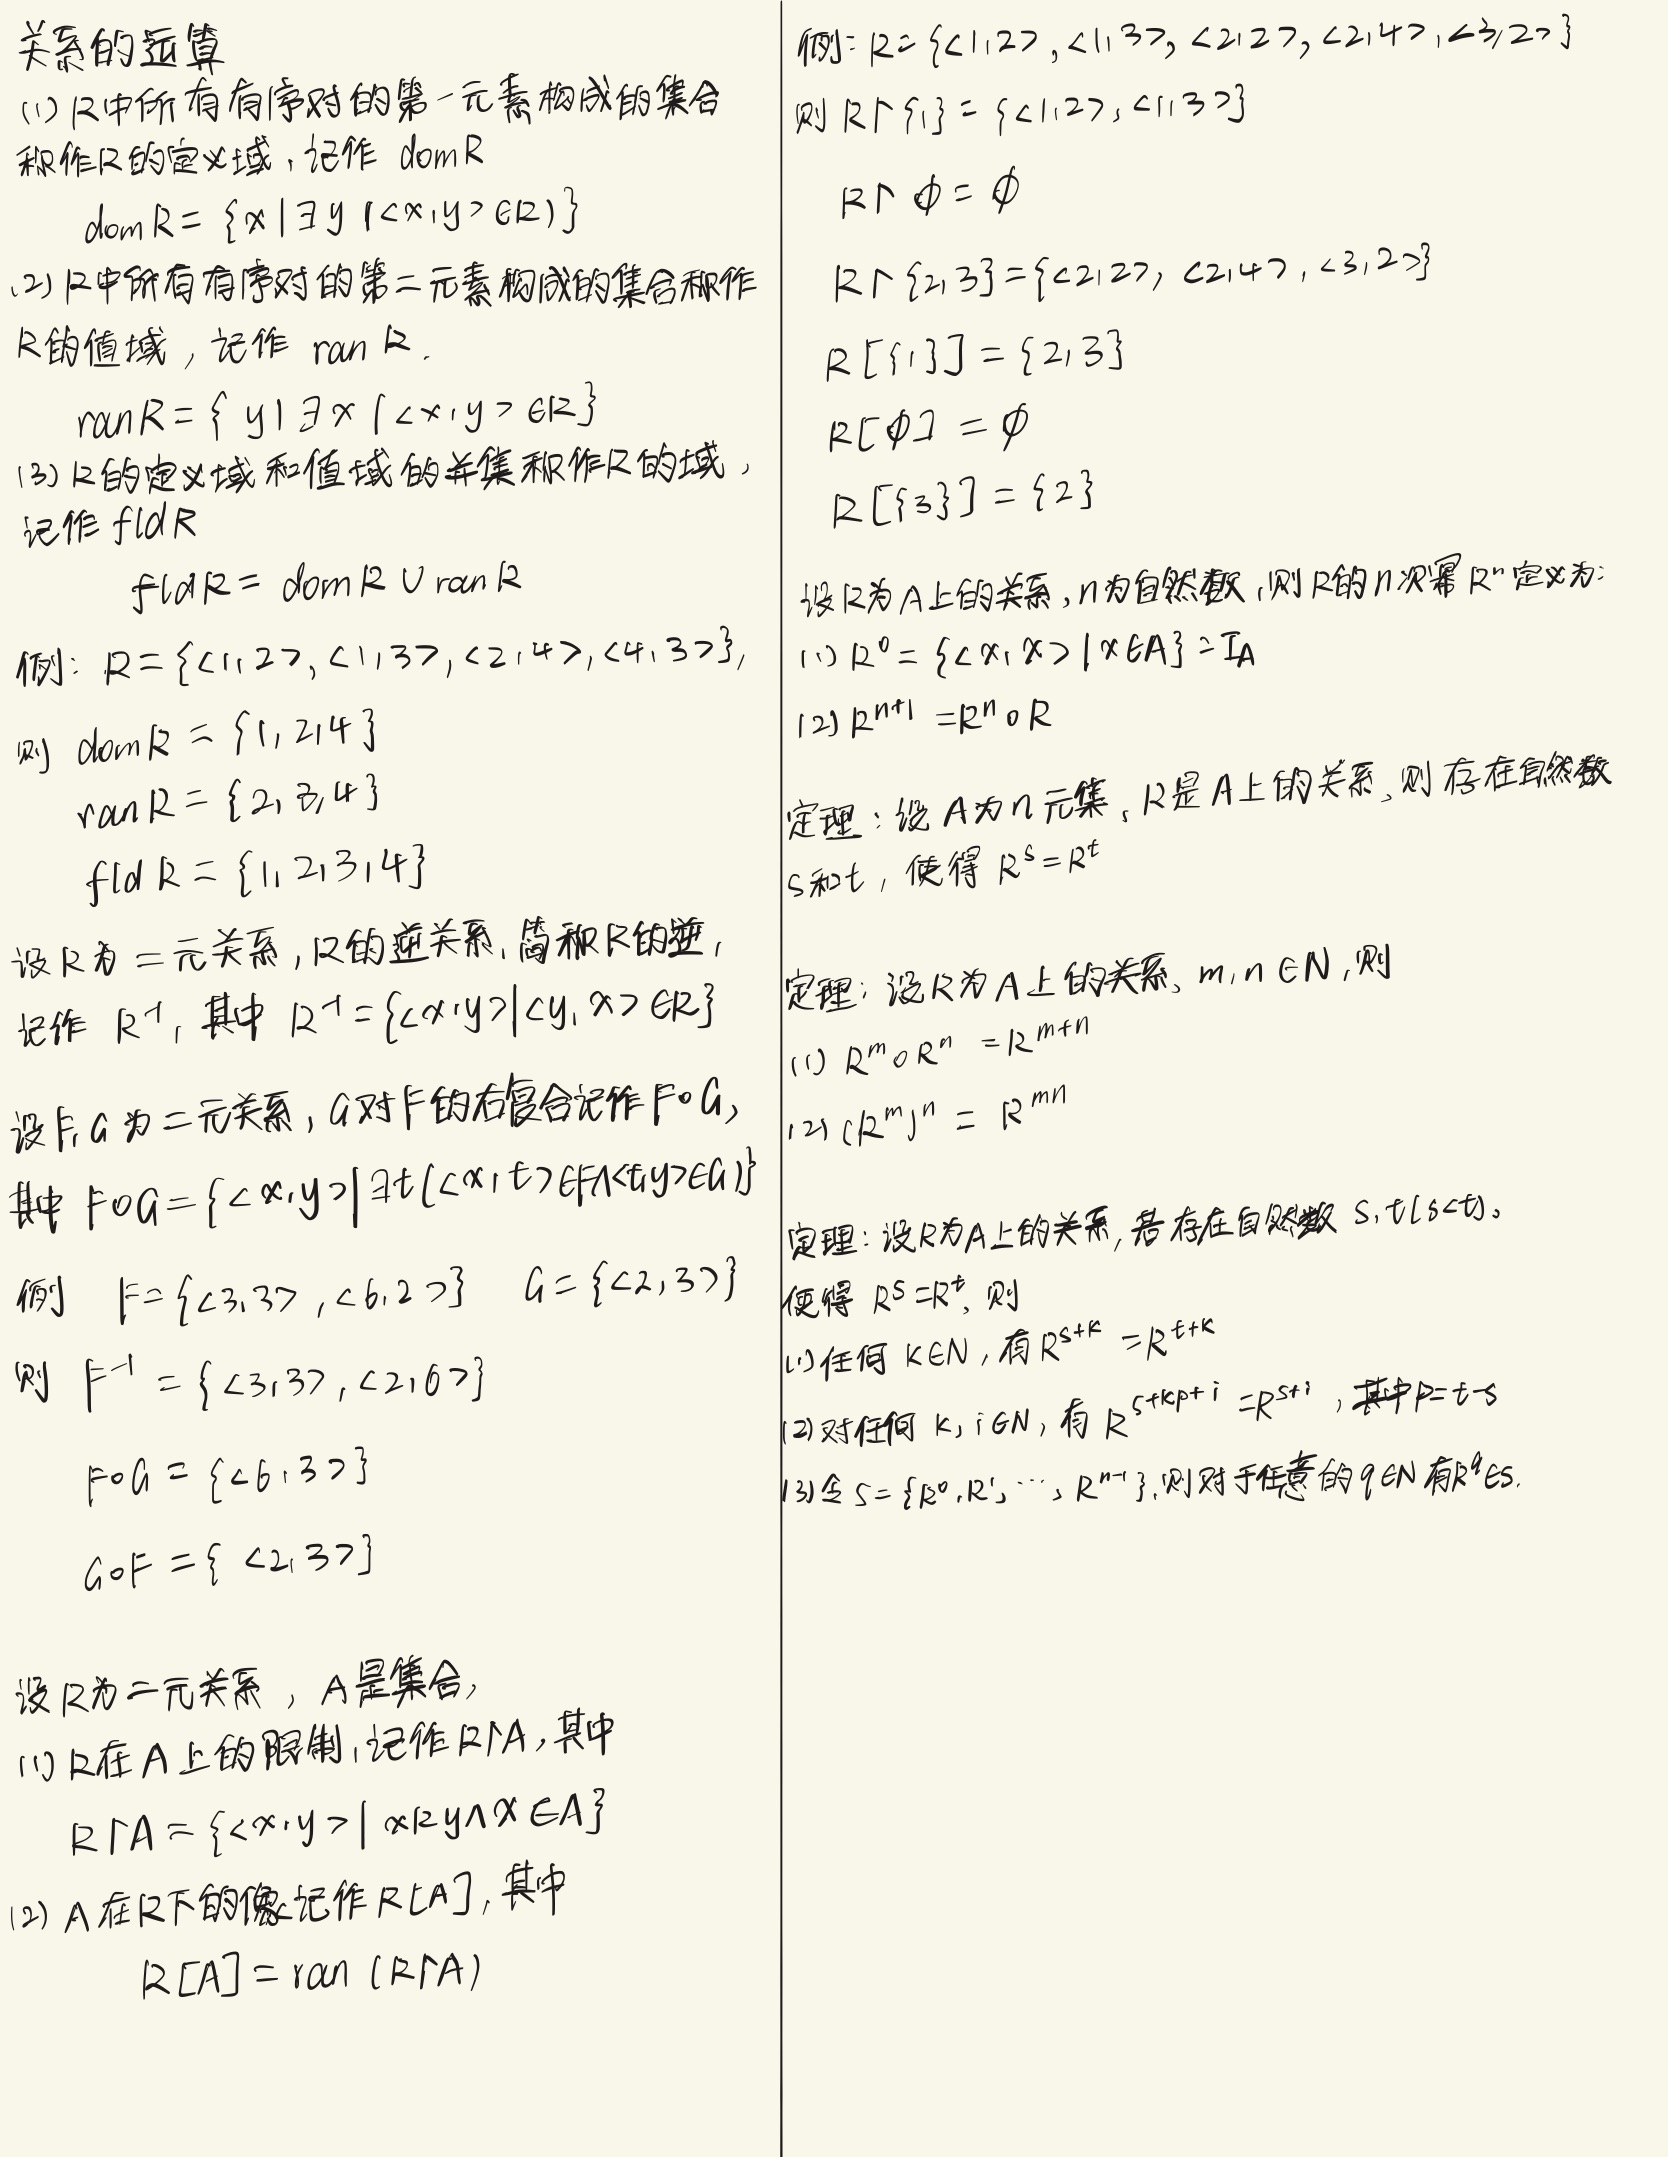 关系的运算
(1) R中所有有序对的第一元素构成的集合
称作R的定义域,记作 domR
domR = {x|∃y(<x,y>∈R)}
(2) R中所有有序对的第二元素构成的集合称作
R的值域,记作 ran R.
ranR = { y|∃x(<x,y>∈R}
(3) R的定义域和值域的并集称作R的域,
记作 fldR
fldR = domR ∪ ranR
例: R = {<1,2>, <1,3>, <2,4>, <4,3>},
则 domR = {1,2,4}
ranR = {2,3,4}
fld R = {1,2,3,4}
设R为二元关系,R的逆关系,简称R的逆,
记作 R⁻¹, 其中 R⁻¹ = {<x,y>|<y,x>∈R}
设F,G为二元关系,G对F的右复合记作F∘G,
其中 F∘G = {<x,y>|∃t(<x,t>∈F∧<t,y>∈G)}
例 F = {<3,3>, <6,2>} G = {<2,3>}
则 F⁻¹ = {<3,3>, <2,6>}
F∘G = {<6,3>}
G∘F = { <2,3>}
设R为二元关系,A是集合,
(1) R在A上的限制,记作R↾A,其中
R↾A = {<x,y>| xRy∧x∈A}
(2) A在R下的像记作R[A],其中
R[A] = ran (R↾A)
例: R = {<1,2>, <1,3>, <2,2>, <2,4>, <3,2>}
则 R↾{1} = {<1,2>, <1,3>}
R↾ ∅ = ∅
R↾{2,3} = {<2,2>, <2,4>, <3,2>}
R[{1}] = {2,3}
R[∅] = ∅
R[{3}] = {2}
设R为A上的关系,n为自然数,则R的n次幂Rⁿ定义为:
(1) R⁰ = {<x,x>|x∈A} = I_A
(2) Rⁿ⁺¹ = Rⁿ∘R
定理:设A为n元集,R是A上的关系,则存在自然数
s和t,使得 Rˢ = Rᵗ
定理:设R为A上的关系、m,n∈N,则
(1) Rᵐ∘Rⁿ = Rᵐ⁺ⁿ
(2) (Rᵐ)ⁿ = Rᵐⁿ
定理:设R为A上的关系,若存在自然数 s,t(s<t)、
使得 Rˢ = Rᵗ, 则
(1) 任何 k∈N,有 Rˢ⁺ᵏ = Rᵗ⁺ᵏ
(2) 对任何 k,i∈N,有 Rˢ⁺ᵏᵖ⁺ⁱ = Rˢ⁺ⁱ,其中p = t-s
(3) 令 S = {R⁰,R¹,⋯, Rⁿ⁻¹},则对于任意的q∈N有R^q∈S.